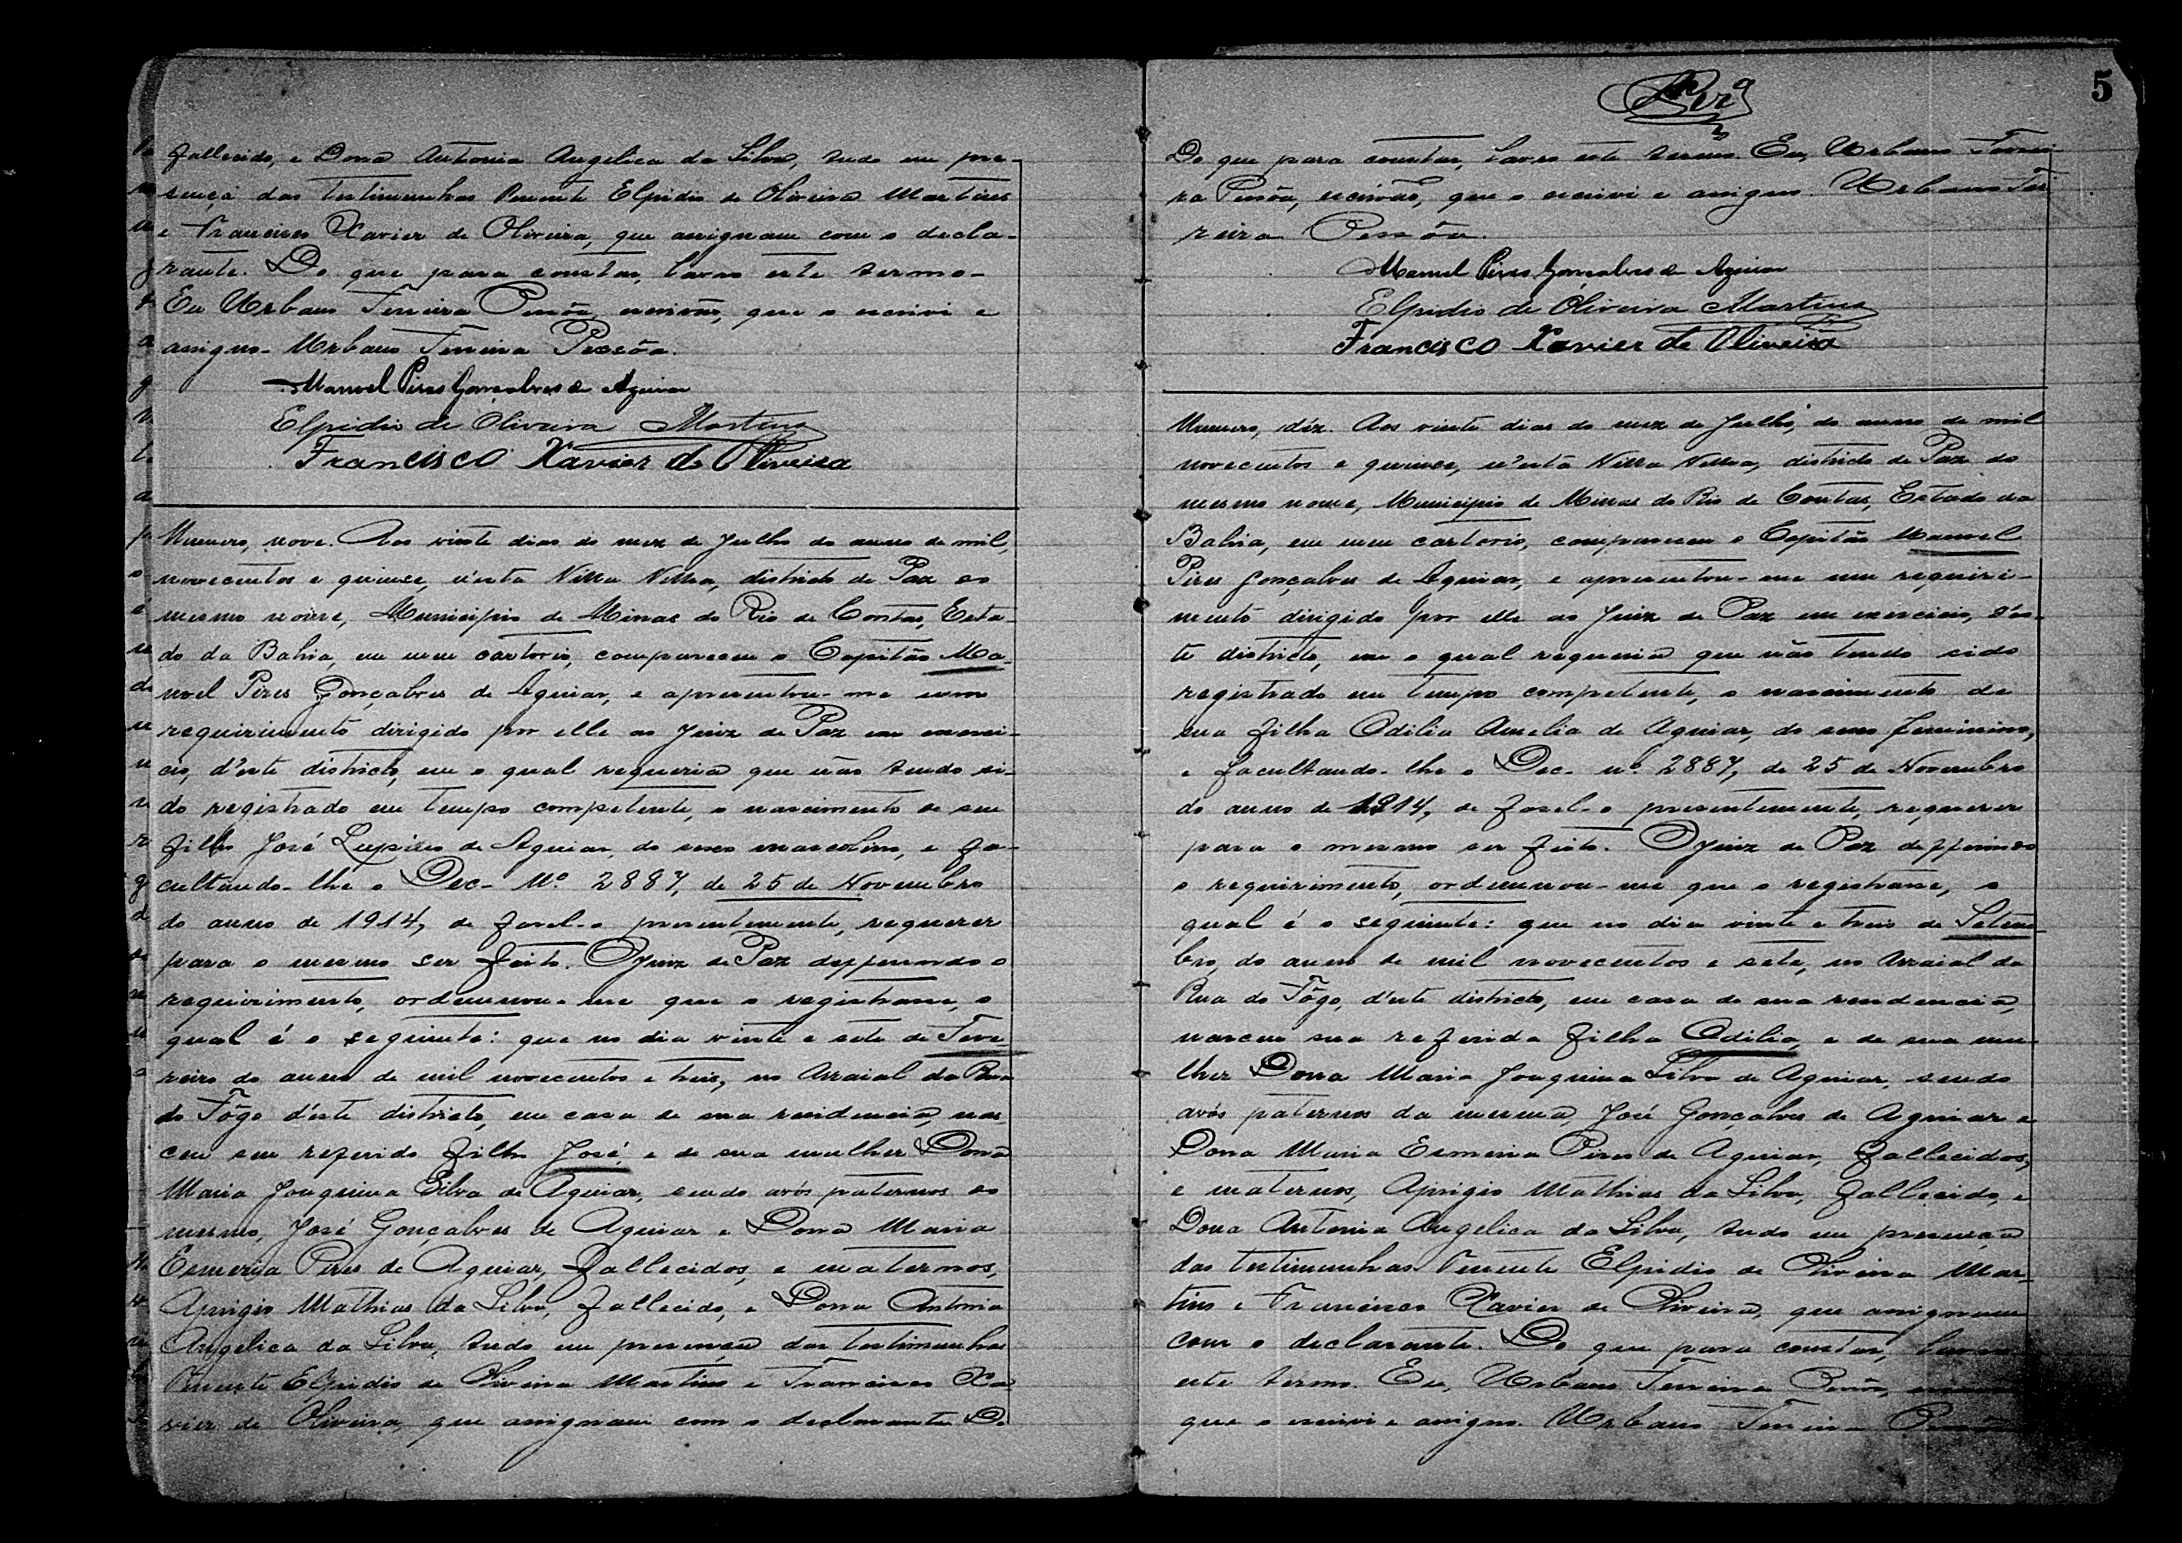 fallecido, e Dona Antonia Angelica da Silva, tudo em pre-
sença das testimunhas Tenente Elpidio de Oliveira Martins
e Francisco Xavier de Oliveira, que assignam com o decla-
rante. Do que para constar, lavro este termo.
Eu Urbano Ferreira Pessôa, escrivão, que o escrivi e
assigno. Urbano Ferreira Pessôa.
Manoel Pires Gonçalves de Aguiar
Elpidio de Oliveira Martins
Francisco Xavier de Oliveira
Numero, nove. Aos vinte dias do mez de Julho do anno de mil,
novecentos e quinze, n'esta Villa Velha, districto de Paz do
mesmo nome, Municipio de Minas do Rio de Contas, Esta-
do da Bahia, em meu cartorio, compareceu o Capitão Ma-
noel Pires Gonçalves de Aguiar, e apresentou-me um
requirimento dirigido por elle ao Juiz de Paz em exerci-
cio, d'este districto, em o qual requeria que não tendo si-
do registrado em tempo competente, o nascimento de seu
filho José de Aguiar, do sexo masculino, e fa-
cultando-lhe o Dec. Nº 2887, de 25 de Novembro
do anno de 1914, de fasel-o presentemente, requerer
para o mesmo ser feito. O Juiz de Paz defferindo o
requirimento, ordennou-me que o registrasse, o
qual é o seguinte: que no dia vinte e sete de Feve-
reiro do anno de mil novecentos e treis, no Arraial da Rua
do Fôgo d'este districto, em casa de sua residencia, nas-
ceu seu referido filho José e de sua mulher Dona
Maria Joaquina Silva de Aguiar, sendo avós paternos do
mesmo, José Gonçalves de Aguiar e Dona Maria
Esmeria Pires de Aguiar, fallecidos, e maternos,
Aprigio Mathias da Silva, fallecido, e Dona Antonia
Angelica da Silva, tudo em presença das testimunhas
Tenente Elpidio de Oliveira Martins e Francisco Xa-
vier de Oliveira, que assignam com o declarante. Do
5
Do que para constar, lavro este termo. Eu, Urbano Ferrei-
ra Pessôa, escrivão, que o escrivi e assigno. Urbano Fer-
reira Pessôa.
Manoel Pires Gonçalves de Aguiar
Elpidio de Oliveira Martins
Francisco Xavier de Oliveira
Numero, déz. Aos vinte dias do mez de Julho, do anno de mil
novecentos e quinze, n'esta Villa Velha, districto de Paz do
mesmo nome, Municipio de Minas do Rio de Contas, Estado da
Bahia, em meu cartorio, compareceu o Capitão Manoel
Pires Gonçalves de Aguiar, e apresentou-me um requiri-
mento dirigido por elle ao Juiz de Paz em exercicio, d'es-
te districto, em o qual requeria que não tendo sido
registrado em tempo competente, o nascimento de
sua filha Odilia Amelia de Aguiar, do sexo feminino,
e facultando-lhe o Dec. nº 2887, de 25 de Novembro
do anno de 1914, de fasel-o presentemente, requerer
para o mesmo ser feito. O Juiz de Paz defferindo
o requirimento, ordennou-me que o registrasse, o
qual é o seguinte: que no dia vinte e treis de Setem-
bro, do anno de mil novecentos e sete, no Arraial da
Rua do Fôgo, d'este districto, em casa de sua residencia,
nasceu sua referida filha Odilia, e de sua mu-
lher Dona Maria Joaquina Silva de Aguiar, sendo
avós paternos da mesma, José Gonçalves de Aguiar e
Dona Maria Esmeria Pires de Aguiar, fallecidos,
e maternos, Aprigio Mathias da Silva, fallecido, e
Dona Antonia Angelica da Silva, tudo em presença
das testimunhas Tenente Elpidio de Oliveira Mar-
tins e Francisco Xavier de Oliveira, que assignam
com o declarante. Do que para constar, lavro
este termo. Eu, Urbano Ferreira Pessôa,
que o escrivi e assigno. Urbano Ferreira Pessôa